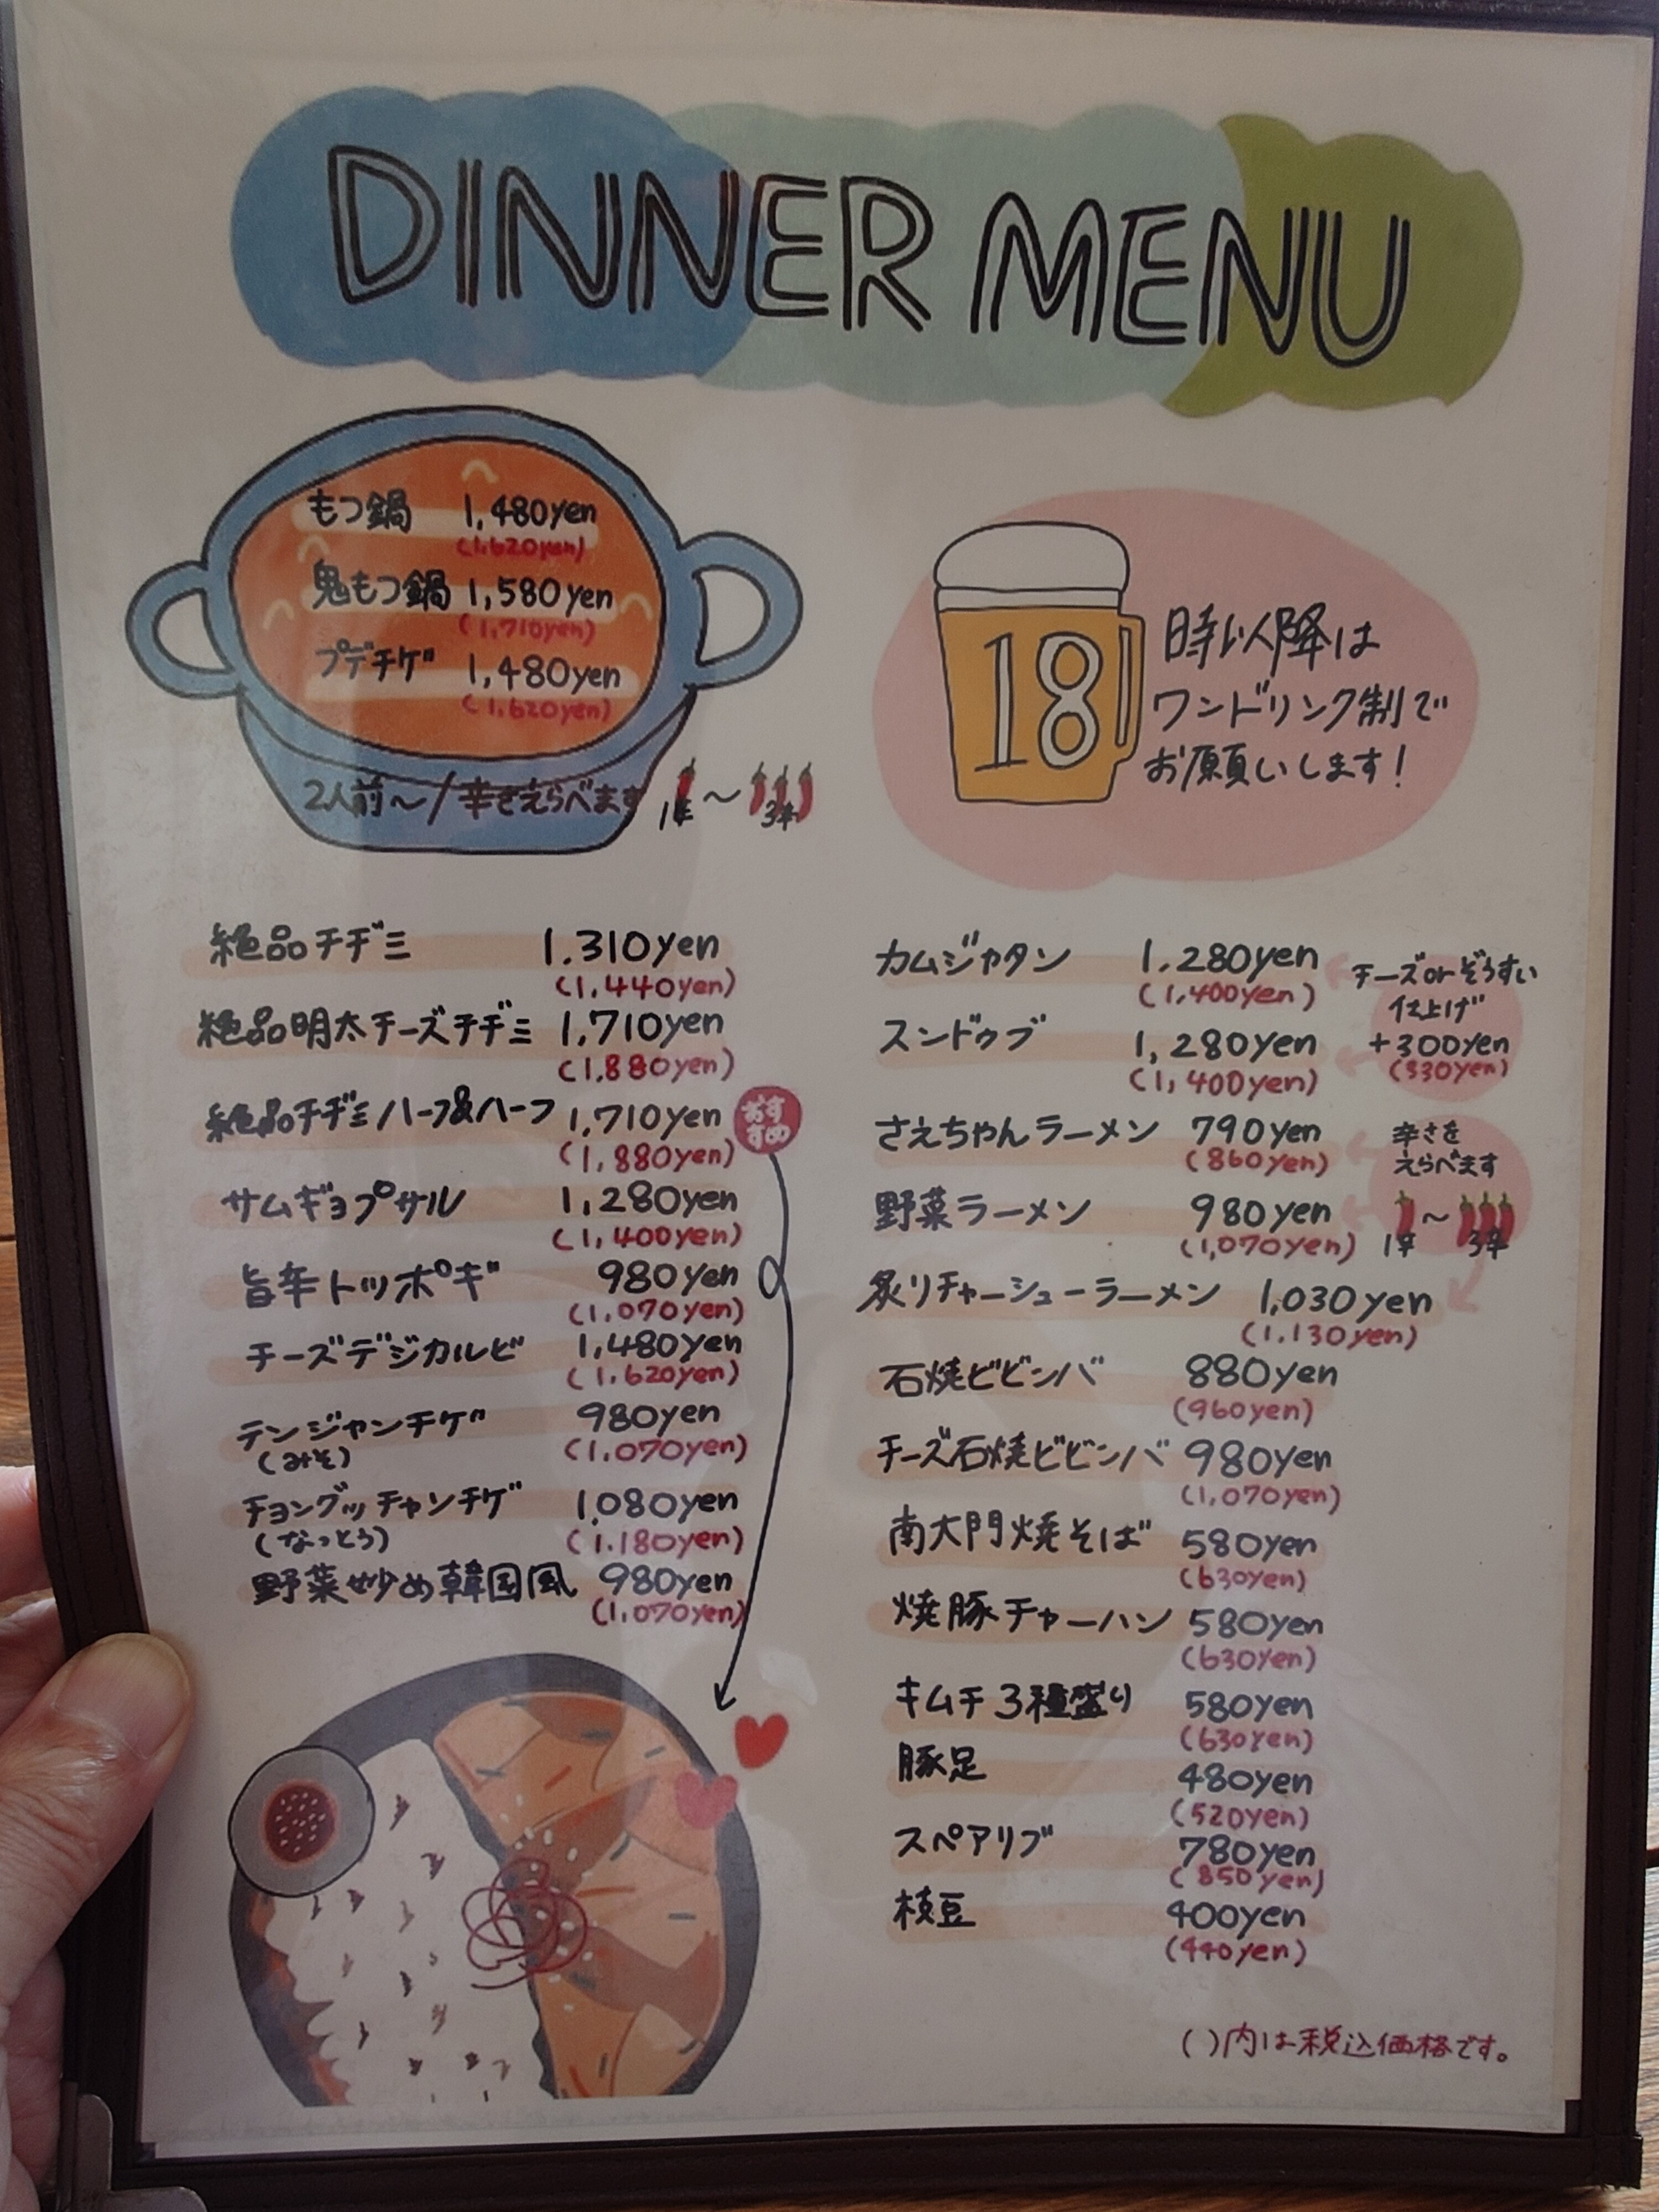 DINNER MENU
もつ鍋 1,480yen
(1,620yen)
鬼もつ鍋 1,580yen
(1,710yen)
プデチゲ 1,480yen
(1,620yen)
2人前～/辛さえらべます 1辛～3辛
18時以降は
ワンドリンク制で
お願いします!
絶品チヂミ 1,310yen
(1,440yen)
絶品明太チーズチヂミ 1,710yen
(1,880yen)
絶品チヂミハーフ&ハーフ 1,710yen
(1,880yen)
おす
すめ
サムギョプサル 1,280yen
(1,400yen)
旨辛トッポギ 980yen
(1,070yen)
チーズデジカルビ 1,480yen
(1,620yen)
テンジャンチゲ 980yen
(みそ) (1,070yen)
チョングッチャンチゲ 1,080yen
(なっとう) (1,180yen)
野菜炒め韓国風 980yen
(1,070yen)
カムジャタン 1,280yen
(1,400yen)
スンドゥブ 1,280yen
(1,400yen)
チーズorぞうすい
仕上げ
+300yen
(330yen)
さえちゃんラーメン 790yen
(860yen)
野菜ラーメン 980yen
(1,070yen)
辛さを
えらべます
1辛～3辛
炙りチャーシューラーメン 1,030yen
(1,130yen)
石焼ビビンバ 880yen
(960yen)
チーズ石焼ビビンバ 980yen
(1,070yen)
南大門焼そば 580yen
(630yen)
焼豚チャーハン 580yen
(630yen)
キムチ3種盛り 580yen
(630yen)
豚足 480yen
(520yen)
スペアリブ 780yen
(850yen)
枝豆 400yen
(440yen)
( )内は税込価格です。